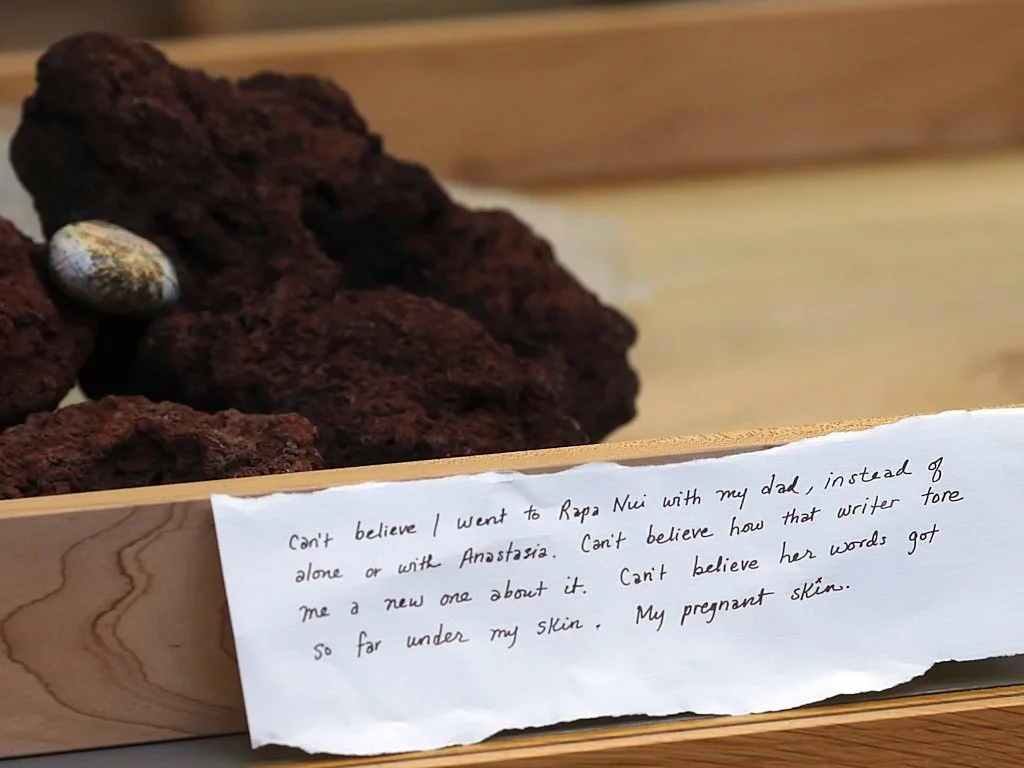 Can't believe I went to Rapa Nui with my dad, instead of
alone or with Anastasia. Can't believe how that writer tore
me a new one about it. Can't believe her words got
so far under my skin. My pregnant skin.